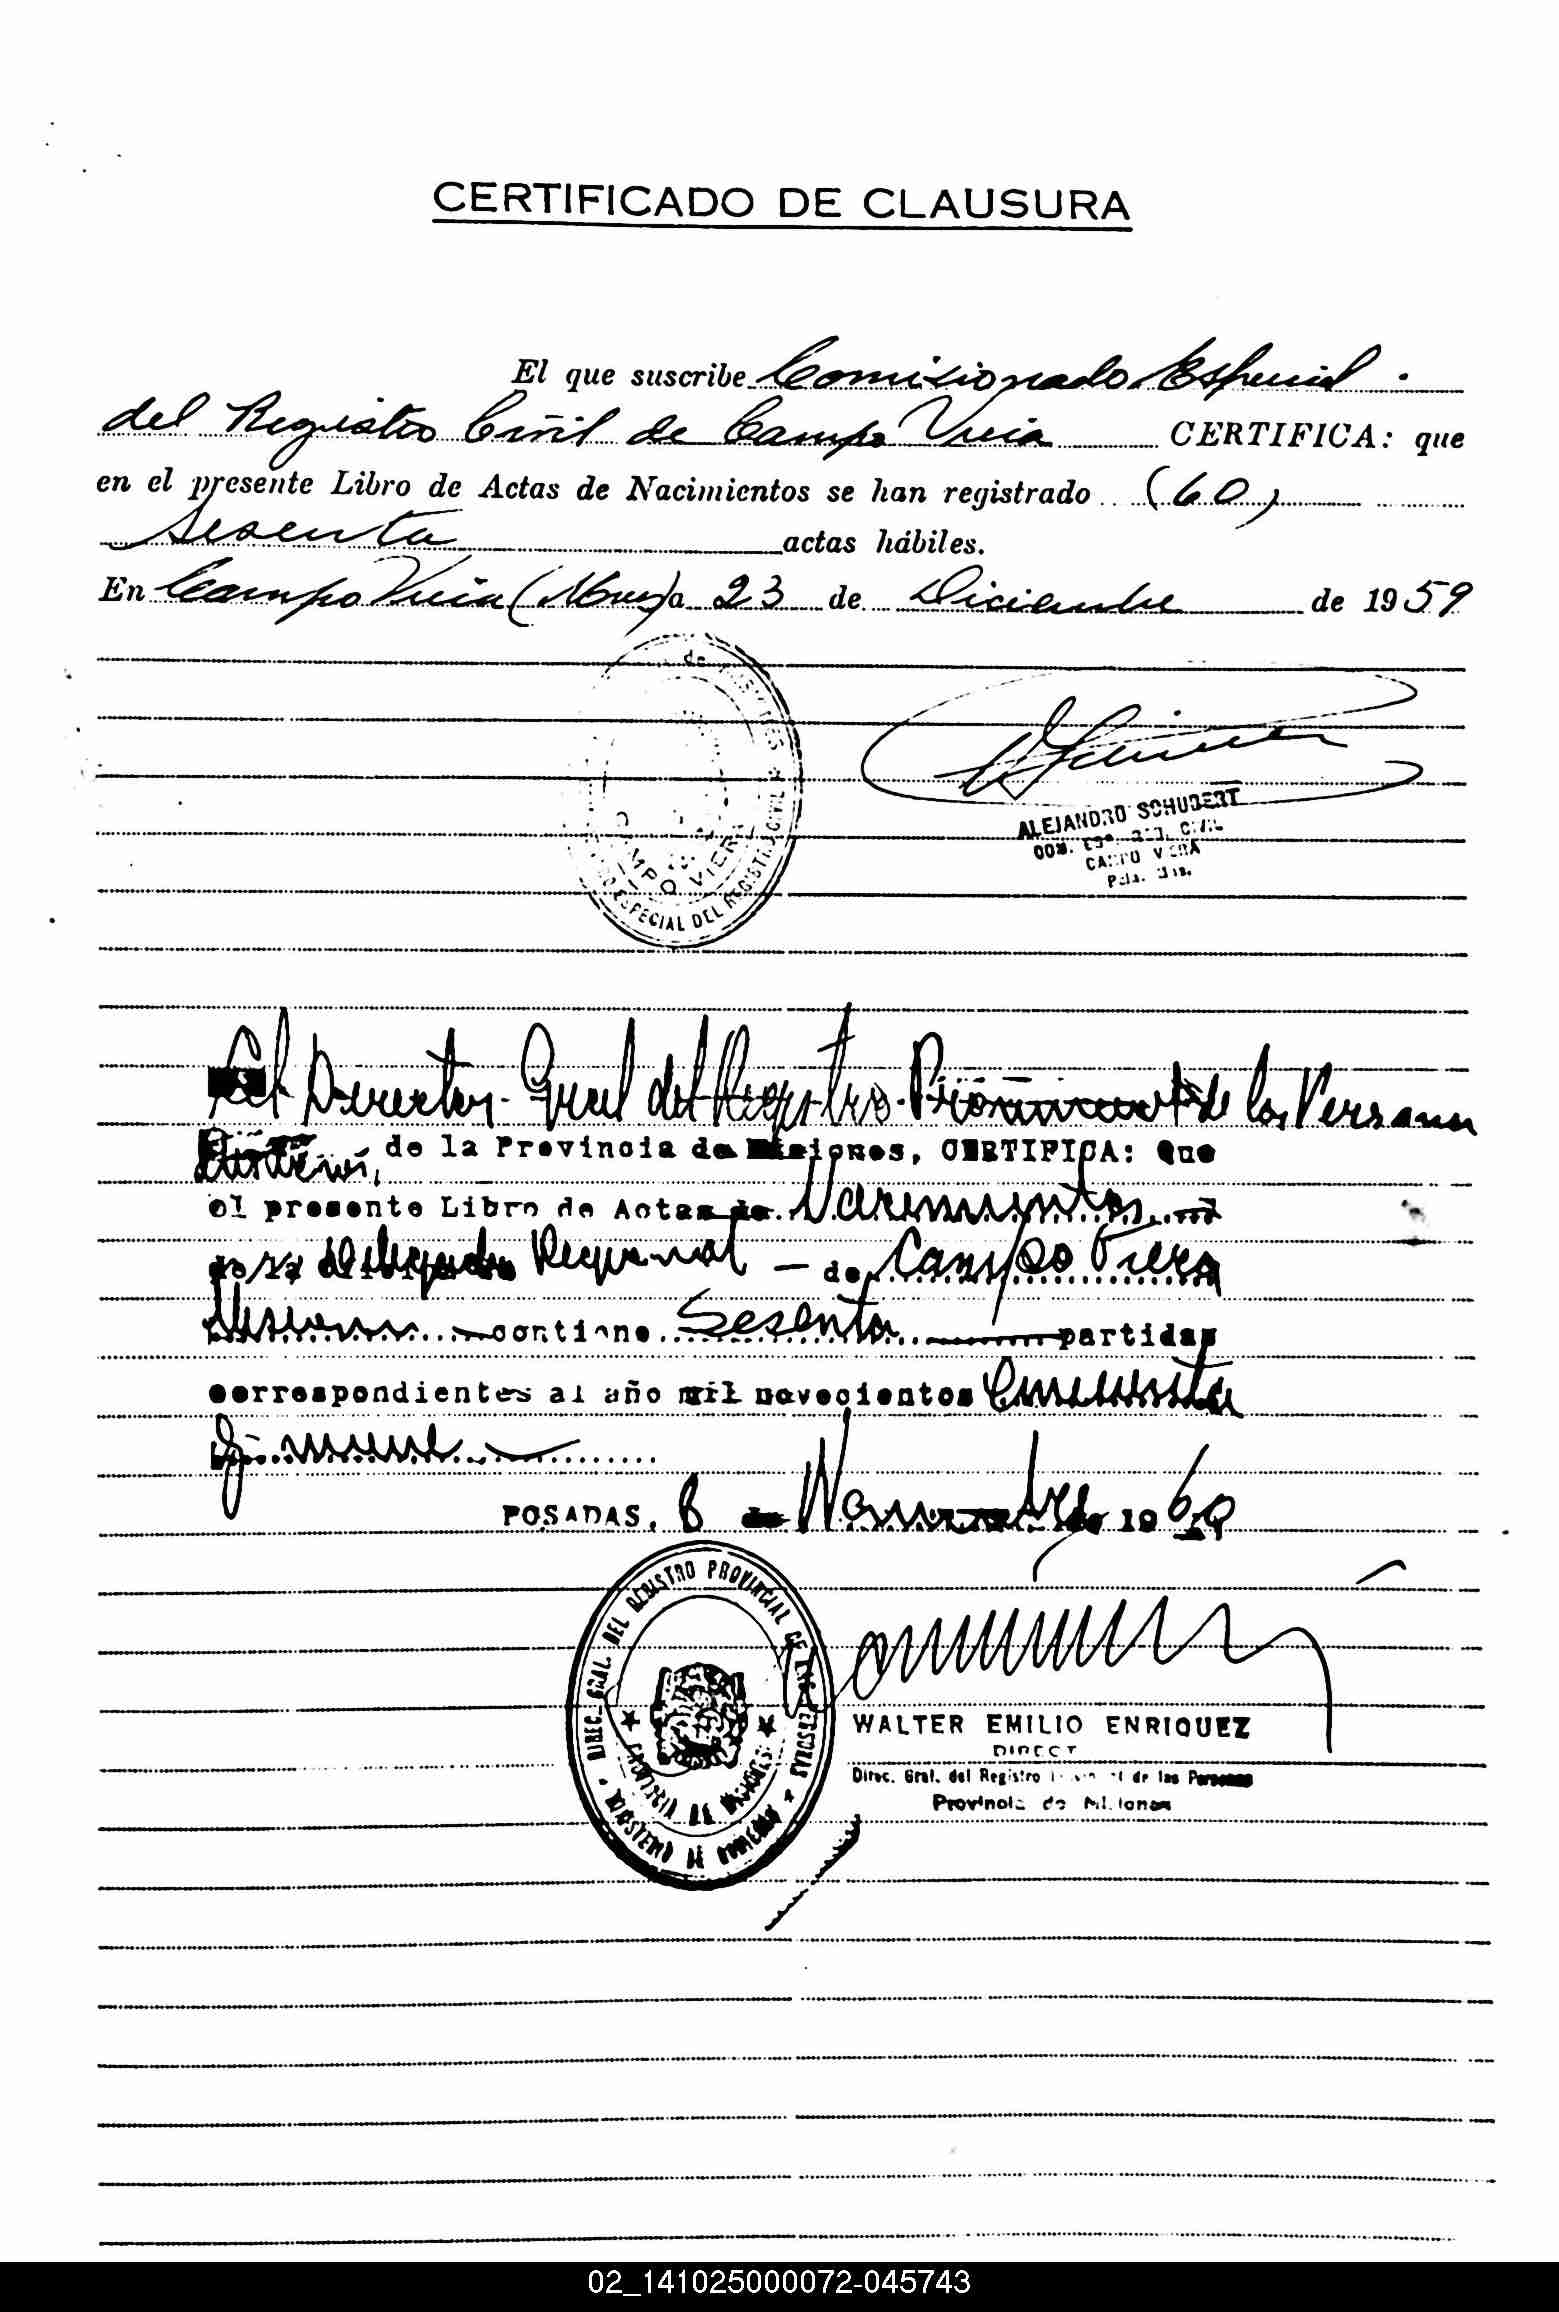 CERTIFICADO DE CLAUSURA
El que suscribe Comisionado Especial
del Registro Civil de Campo Viera CERTIFICA: que
en el presente Libro de Actas de Nacimientos se han registrado (60)
Sesenta actas hábiles.
En Campo Viera (Mnes) a 23 de Diciembre de 1959
de
CAMPO VIERA
ESPECIAL DEL REGISTRO CIVIL
ALEJANDRO SCHUBERT
COM. ESP. REG. CIVIL
CAMPO VIERA
El Director Gral del Registro Provincial de las Personas
de la Provincia de Misiones, CERTIFICA: Que
el presente Libro de Actas de Nacimientos
de la Delegación Regional — de Campo Viera
Misiones contiene Sesenta partidas
correspondientes al año mil novecientos Cincuenta
y nueve
POSADAS, 8 de Noviembre de 1960
DIREC. GRAL. DEL REGISTRO PROVINCIAL DE LAS PERSONAS
PROVINCIA DE MISIONES
MINISTERIO DE GOBIERNO
WALTER EMILIO ENRIQUEZ
DIRECT
Direc. Gral. del Registro de las Personas
Provincia de Misiones
02_141025000072-045743